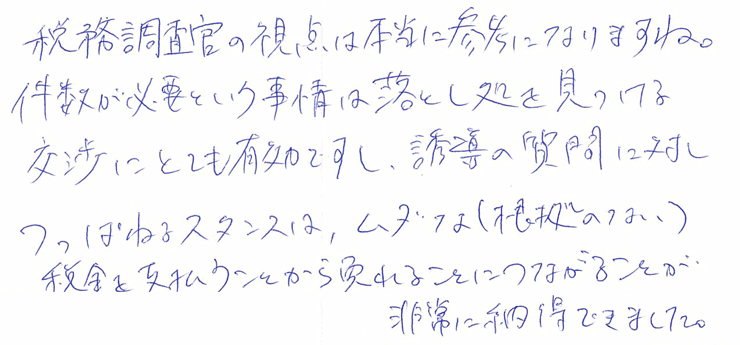 税務調査官の視点は本当に参考になりますね。
件数が必要という事情は落とし処を見つける
交渉にとても有効ですし、誘導の質問に対し
つっぱねるスタンスは，ムダな（根拠のない）
税金を支払うことから免れることにつながることが
非常に納得できました。